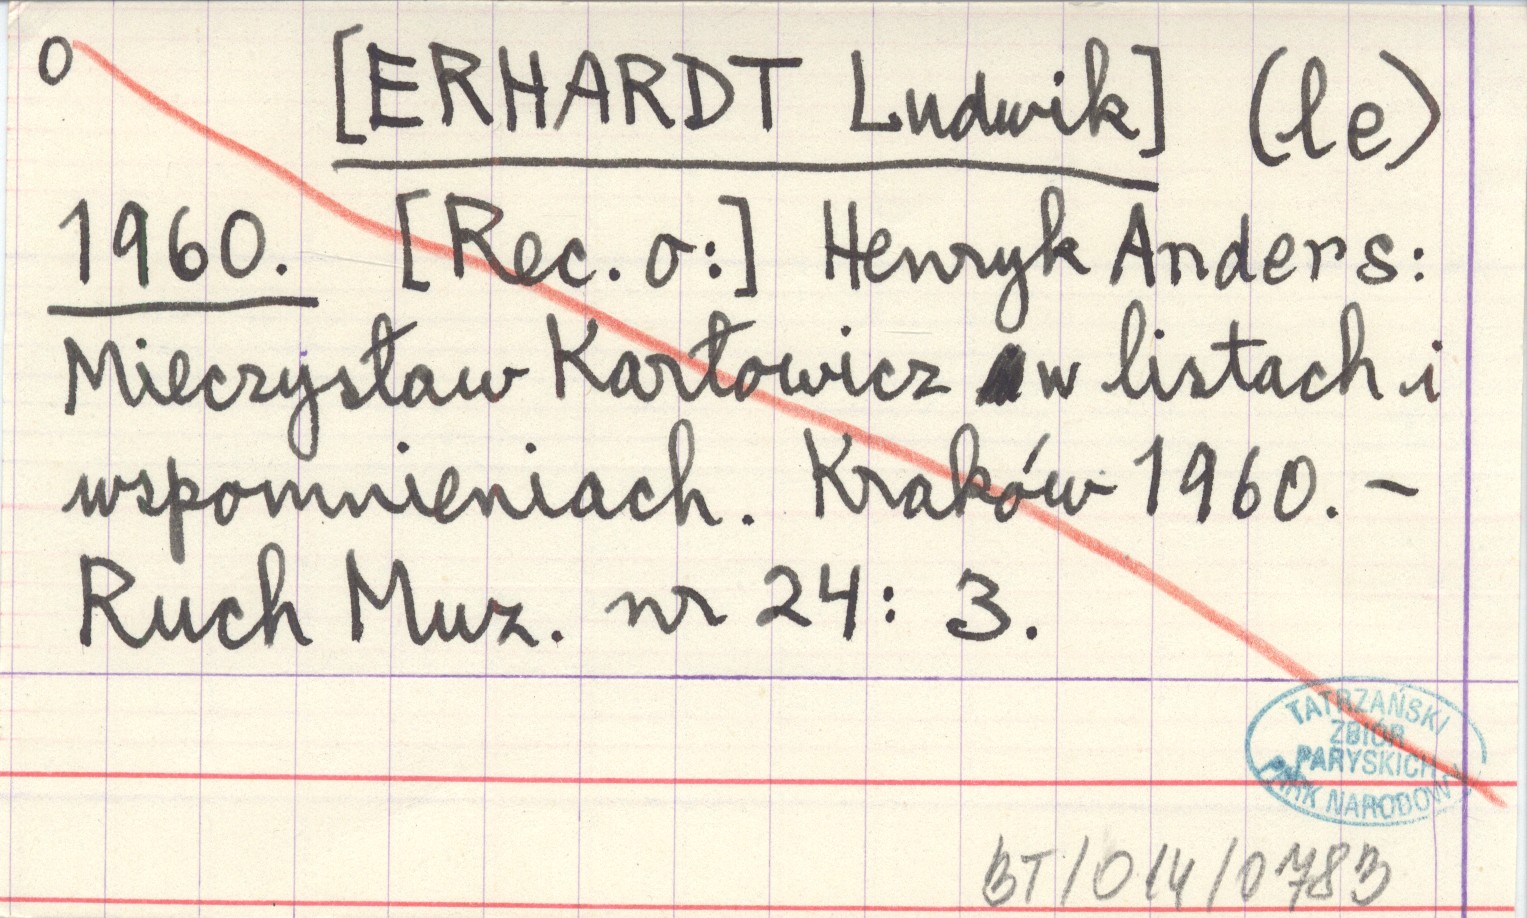 0 [ERHARDT Ludwik] (le)
1960. [Rec. o:] Henryk Anders:
Mieczysław Karłowicz w listach i
wspomnieniach. Kraków 1960. –
Ruch Muz. nr 24: 3.
TATRZAŃSKI
ZBIÓR
PARYSKICH
PARK NARODOWY
BT/014/0783